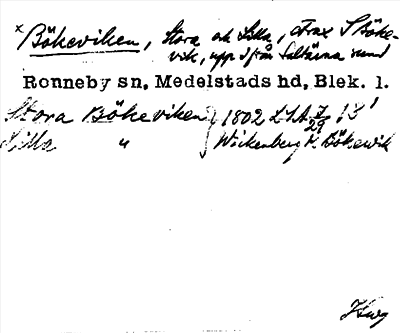 x Bökeviken, Stora och Lilla, strax S Böke-
vik, upp ifrån Saltärna sund
Ronneby sn, Medelstads hd, Blek. l.
Stora Bökeviken } 1802 LSA 18
Lilla " } Wickenberg K. Bökewik